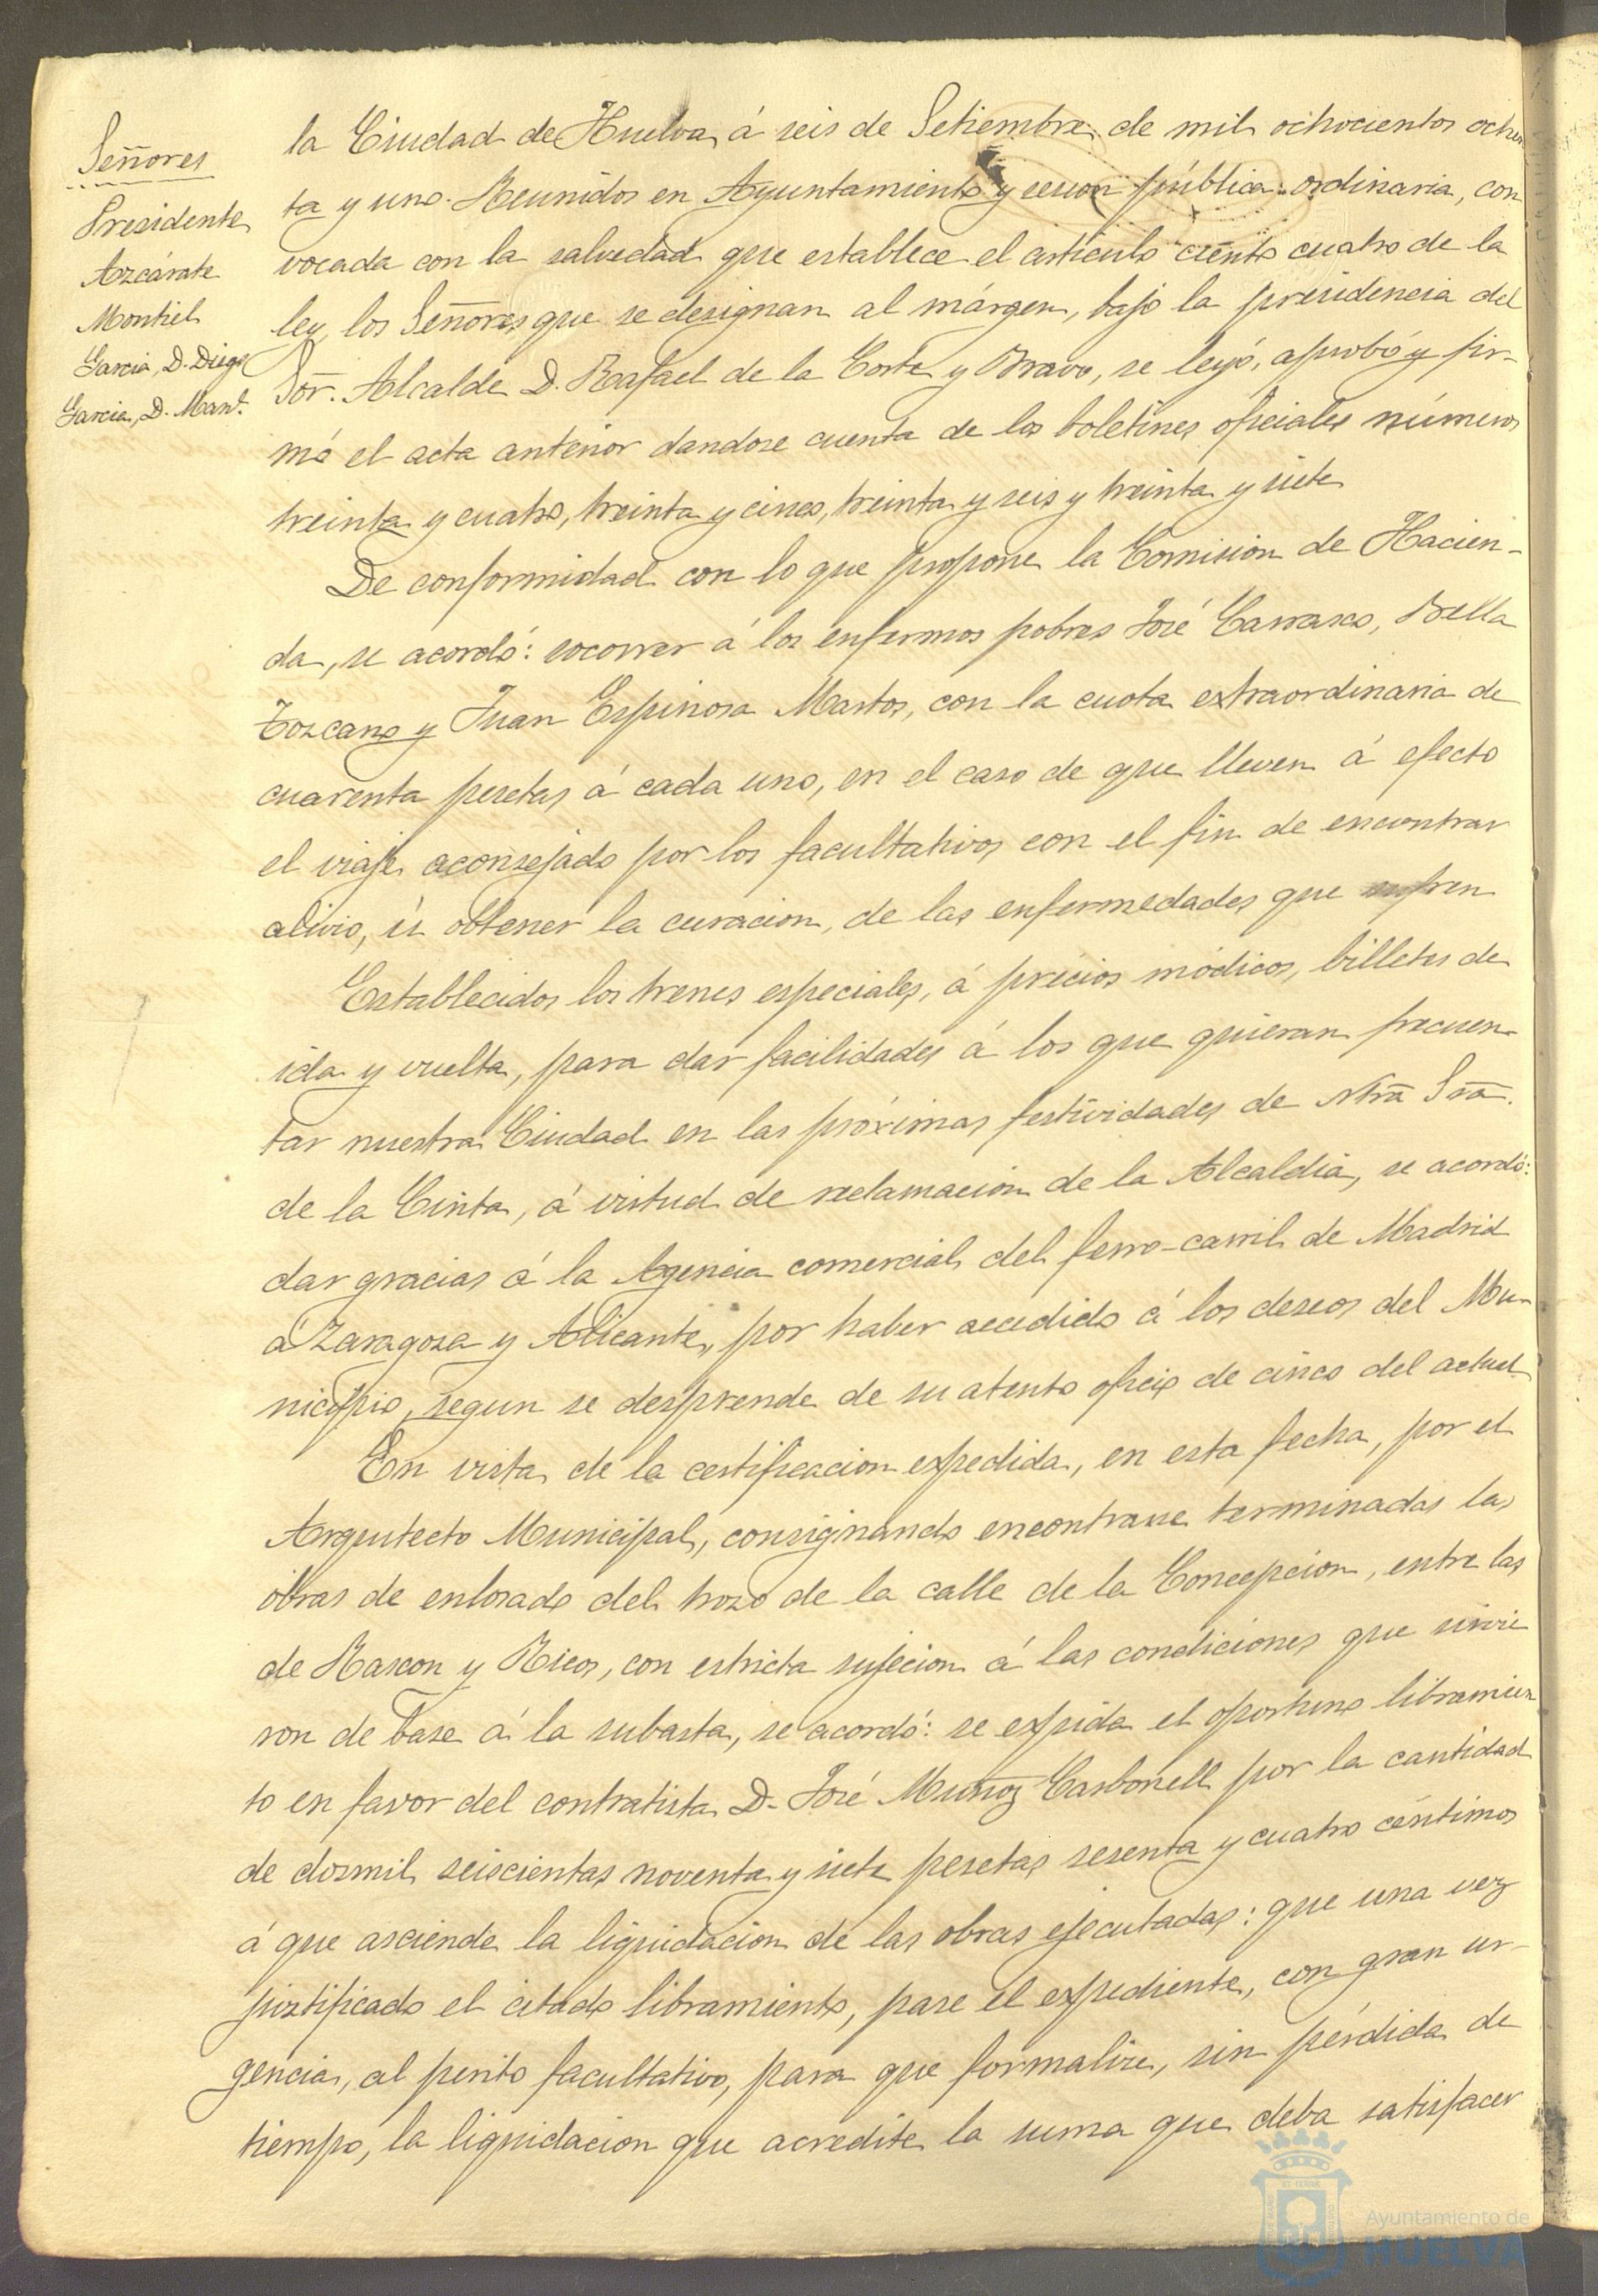 Señores
Presidente
Azcárate
Montiel
Garcia, D. Diego
Garcia, D. Man.l
la Ciudad de Huelva, á seis de Setiembre, de mil ochocientos ochen
ta y uno. Reunidos en Ayuntamiento y sesion pública ordinaria, con
vocada con la salvedad que establece el artículo ciento cuatro de la
ley, los Señores que se designan al márgen, bajo la presidencia del
Sor. Alcalde D. Rafael de la Corte y Bravo, se leyó, aprobó y fir-
mó el acta anterior dandose cuenta de los boletines oficiales números
treinta y cuatro, treinta y cinco, treinta y seis y treinta y siete
De conformidad con lo que propone la Comision de Hacien-
da, se acordó: socorrer á los enfermos pobres José Carrasco, Bella
Tozcano y Juan Espinosa Martos, con la cuota extraordinaria de
cuarenta pesetas á cada uno, en el caso de que lleven á efecto
el viaje aconsejado por los facultativos con el fin de encontrar
alivio, ú obtener la curacion, de las enfermedades que sufren
Establecidos los trenes especiales, á precios módicos, billetes de
ida y vuelta, para dar facilidades á los que quieran frecuen-
tar nuestra Ciudad en las próximas festividades de Ntrã Srã.
de la Cinta, á virtud de reclamacion de la Alcaldia, se acordó:
dar gracias á la Agencia comercial del ferro-carril de Madrid
á Zaragoza y Alicante, por haber accedido á los deseos del Mu-
nicipio, segun se desprende de su atento oficio de cinco del actual
En vista de la certificacion expedida, en esta fecha, por el
Arquitecto Municipal, consignando encontrarse terminadas las
obras de enlosado del trozo de la calle de la Concepcion, entre las
de Rascon y Ricos, con estricta sujecion á las condiciones que sirvie
ron de base á la subasta, se acordó: se expida el oportuno libramien
to en favor del contratista D. José Muñoz Carbonell por la cantidad
de dosmil seiscientas noventa y siete pesetas sesenta y cuatro céntimos
á que asciende la liquidacion de las obras ejecutadas: que una vez
justificado el citado libramiento, pase el expediente, con gran ur-
gencia, al perito facultativo, para que formalice, sin pérdida de
tiempo, la liquidacion que acredite la suma que deba satisfacer
Ayuntamiento de
HUELVA